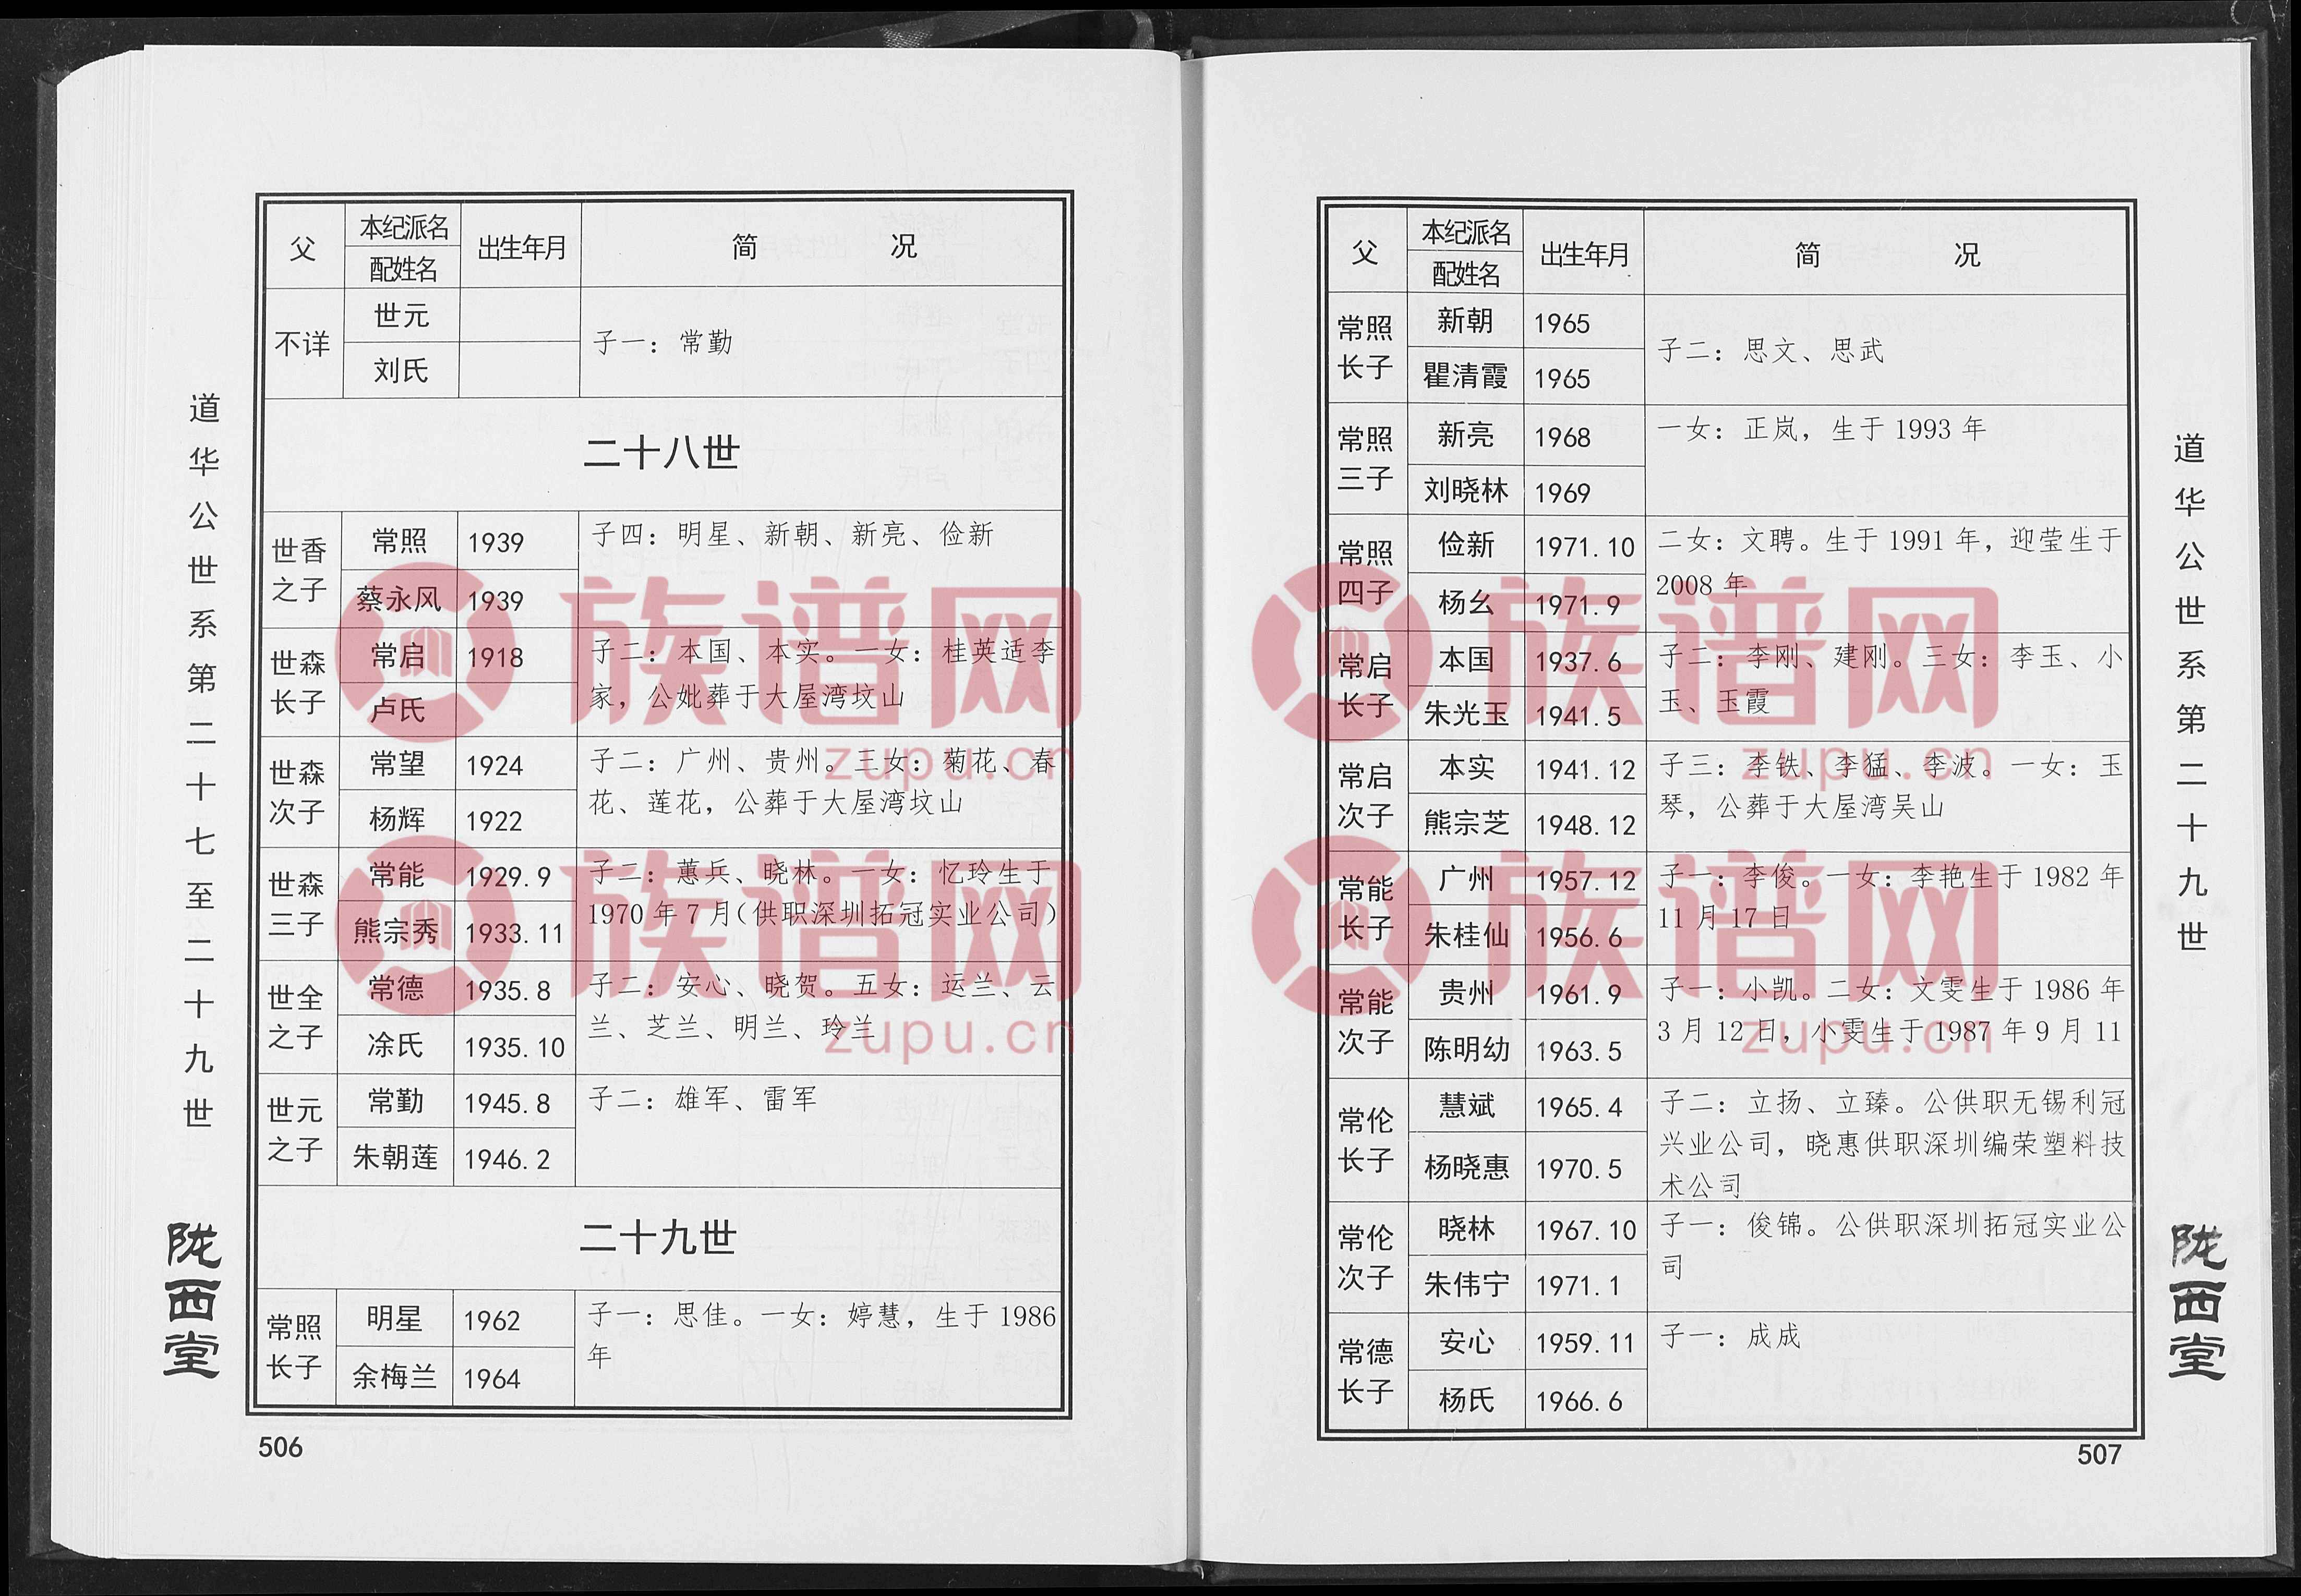 道华公世系第二十七至二十九世
陇西堂
父
本纪派名
配姓名
出生年月
简 况
不详
世元
刘氏
子一：常勤
二十八世
世香
之子
常照 1939
蔡永风 1939
子四：明星、新朝、新亮、俭新
世森
长子
常启 1918
卢氏
子二：本国、本实。一女：桂英适李
家，公妣葬于大屋湾坟山
世森
次子
常望 1924
杨辉 1922
子二：广州、贵州。三女：菊花、春
花、莲花，公葬于大屋湾坟山
世森
三子
常能 1929.9
熊宗秀 1933.11
子二：蕙兵、晓林。一女：忆玲生于
1970年7月（供职深圳拓冠实业公司）
世全
之子
常德 1935.8
凃氏 1935.10
子二：安心、晓贺。五女：运兰、云
兰、芝兰、明兰、玲兰
世元
之子
常勤 1945.8
朱朝莲 1946.2
子二：雄军、雷军
二十九世
常照
长子
明星 1962
余梅兰 1964
子一：思佳。一女：婷慧，生于1986
年
506
父
本纪派名
配姓名
出生年月
简 况
常照
长子
新朝 1965
瞿清霞 1965
子二：思文、思武
常照
三子
新亮 1968
刘晓林 1969
一女：正岚，生于1993年
常照
四子
俭新 1971.10
杨幺 1971.9
二女：文聘。生于1991年，迎莹生于
2008年
常启
长子
本国 1937.6
朱光玉 1941.5
子二：李刚、建刚。三女：李玉、小
玉、玉霞
常启
次子
本实 1941.12
熊宗芝 1948.12
子三：李铁、李猛、李波。一女：玉
琴，公葬于大屋湾吴山
常能
长子
广州 1957.12
朱桂仙 1956.6
子一：李俊。一女：李艳生于1982年
11月17日
常能
次子
贵州 1961.9
陈明幼 1963.5
子一：小凯。二女：文雯生于1986年
3月12日，小雯生于1987年9月11
常伦
长子
慧斌 1965.4
杨晓惠 1970.5
子二：立扬、立臻。公供职无锡利冠
兴业公司，晓惠供职深圳编荣塑料技
术公司
常伦
次子
晓林 1967.10
朱伟宁 1971.1
子一：俊锦。公供职深圳拓冠实业公
司
常德
长子
安心 1959.11
杨氏 1966.6
子一：成成
507
道华公世系第二十九世
陇西堂
族谱网
zupu.cn
族谱网
zupu.cn
族谱网
zupu.cn
族谱网
zupu.cn